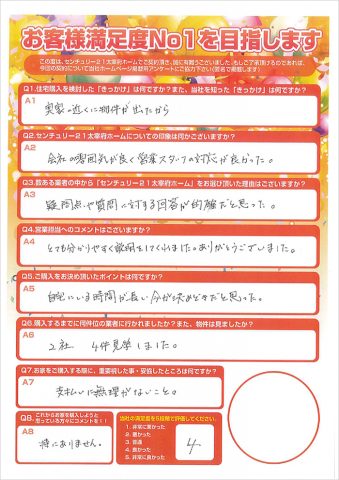 お客様満足度No1を目指します
この度は、センチュリー21太宰府ホームでご契約頂き、誠に有難うございました。もしご了承頂けるのであれば、
今回の契約について当社ホームページ掲載用アンケートにご協力下さい(匿名で掲載します)
Q1.住宅購入を検討した「きっかけ」は何ですか?また、当社を知った「きっかけ」は何ですか?
A1
実家の近くに物件が出たから
Q2.センチュリー21太宰府ホームについての印象は何かございますか?
A2
会社の雰囲気が良く営業スタッフの対応が良かった。
Q3.数ある業者の中から「センチュリー21太宰府ホーム」をお選び頂いた理由はございますか?
A3
疑問点や質問に対する回答が的確だと思った。
Q4.営業担当へのコメントはございますか?
A4
とても分かりやすく説明をしてくれました。ありがとうございました。
Q5.ご購入をお決め頂いたポイントは何ですか?
A5
自宅にいる時間が長い今が決めどきだと思った。
Q6.購入するまでに何件位の業者に行かれましたか?また、物件は見ましたか?
A6
2社 4件見学しました。
Q7.お家をご購入する際に、重要視した事・妥協したところは何ですか?
A7
支払いに無理がないこと。
Q8.これからお家を購入しようと
思っている方々にコメントを!!
A8
特にありません。
当社の満足度を5段階で評価してください。
1. 非常に悪かった
2. 悪かった
3. 普通
4. 良かった
5. 非常に良かった
4